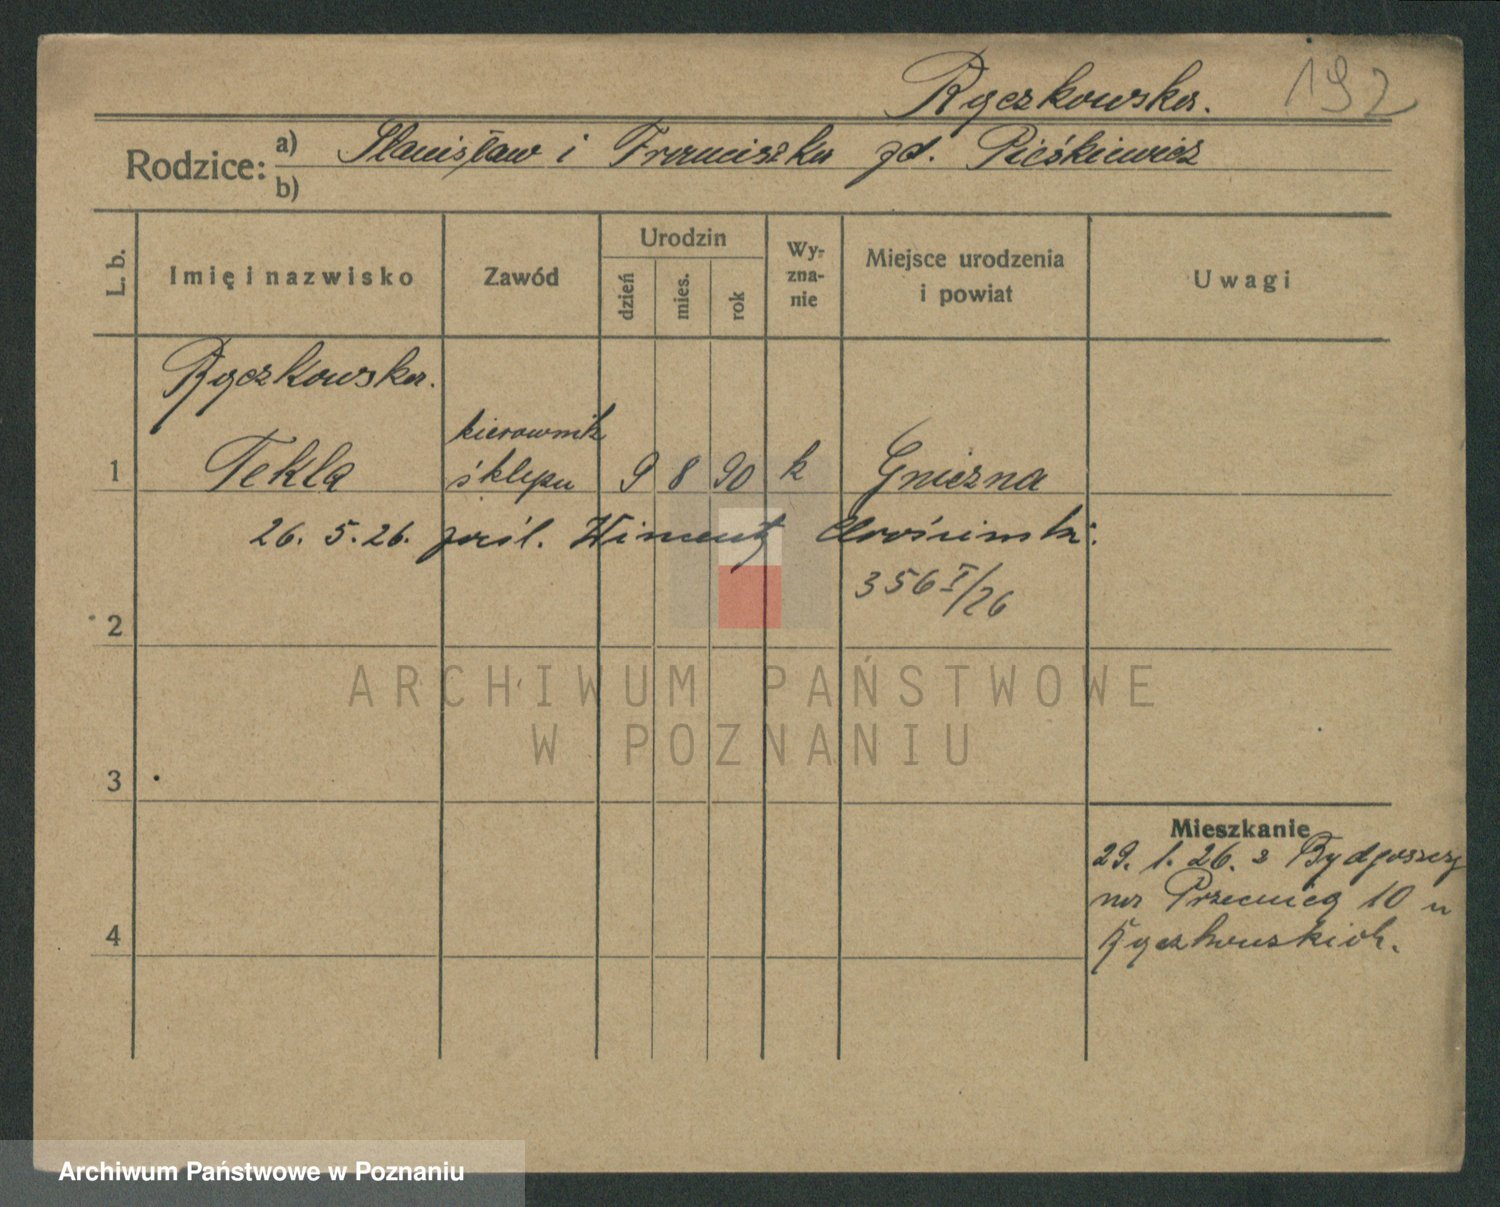 Ryczkowska. 192
Rodzice: a) Stanisław i Franciszka zd.
b)
L. b. Imię i nazwisko Zawód Urodzin dzień mies. rok Wyznanie Miejsce urodzenia i powiat Uwagi
Ryczkowska.
kierownik
1 Tekla sklepu 9 8 90 k Gniezna
26. 5. 26. pośl.
356 I/26
2
ARCHIWUM PAŃSTWOWE
W POZNANIU
3
Mieszkanie
29. 1. 26. z Bydgoszczy
na 10 u
4 Ryczkowskich.
Archiwum Państwowe w Poznaniu